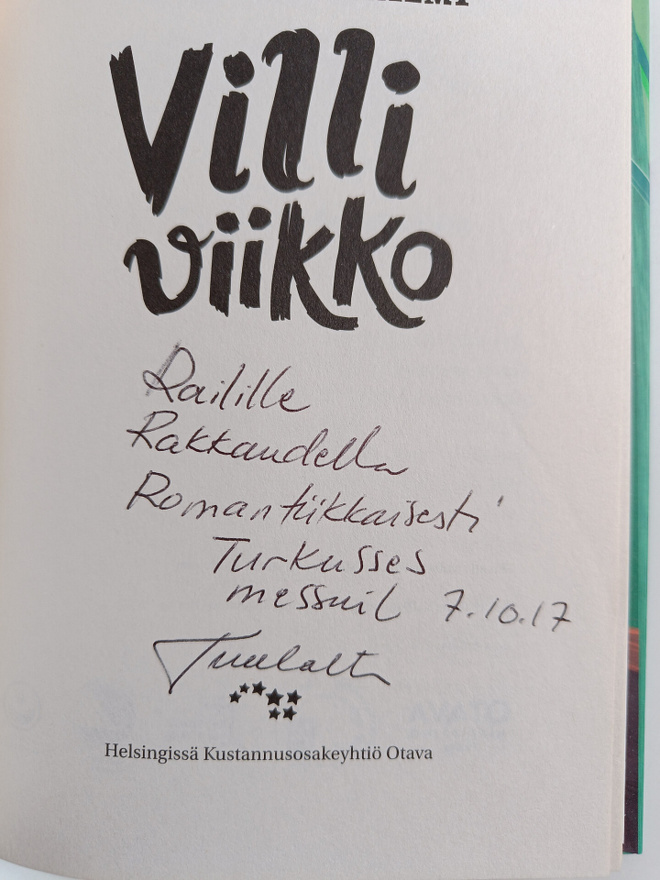 Villi
viikko
Railille
Rakkaudella
Romantiikkaisesti
Turkusses
messuil 7.10.17
Tuulalta
Helsingissä Kustannusosakeyhtiö Otava